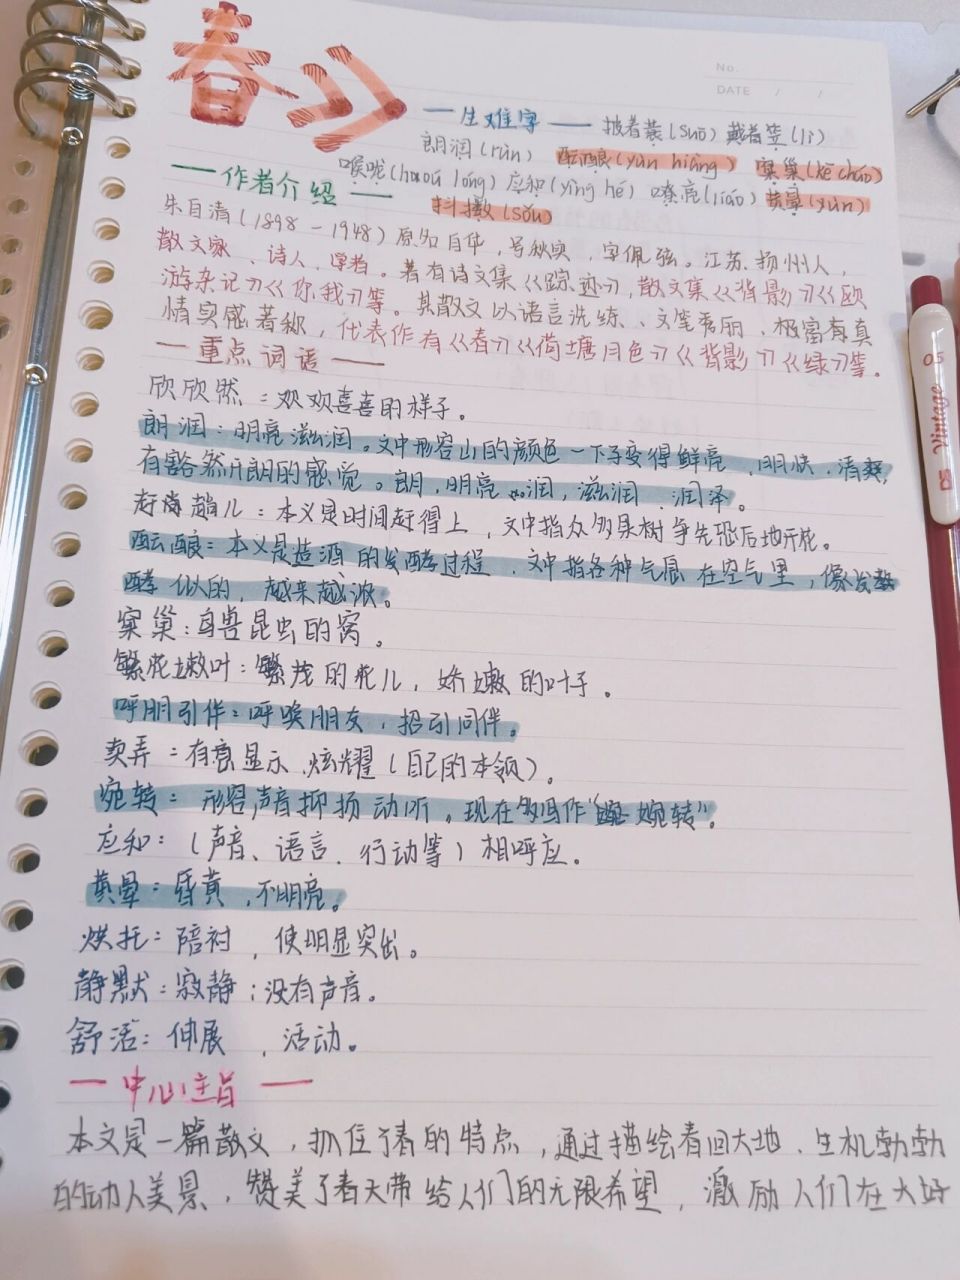 春》
No.
DATE / /
一生难字一 披着蓑(suō) 戴着笠(lì)
朗润(rùn) 酝酿(yùn niàng) 窠巢(kē cháo)
喉咙(hóu lóng) 应和(yìng hè) 嘹亮(liáo) 黄晕(yùn)
抖擞(sǒu)
一作者介绍一
朱自清(1898-1948)原名自华,号秋实,字佩弦。江苏扬州人,
散文家、诗人、学者。著有诗文集《踪迹》,散文集《背影》《欧
游杂记》《你我》等。其散文以语言洗练、文笔秀丽、极富有真
情实感著称,代表作有《春》《荷塘月色》《背影》《绿》等。
一重点词语一
欣欣然:欢欢喜喜的样子。
朗润:明亮滋润。文中形容山的颜色一下子变得鲜亮、明快、清爽,
有豁然开朗的感觉。朗,明亮。润,滋润、润泽。
赶趟儿:本义是时间赶得上,文中指众多果树争先恐后地开花。
酝酿:本义是造酒的发酵过程,文中指各种气息在空气里,像发
酵似的,越来越浓。
窠巢:鸟兽昆虫的窝。
繁花嫩叶:繁茂的花儿,娇嫩的叶子。
呼朋引伴:呼唤朋友,招引同伴。
卖弄:有意显示、炫耀(自己的本领)。
宛转:形容声音抑扬动听。现在多写作“婉转”。
应和:(声音、语言、行动等)相呼应。
黄晕:昏黄,不明亮。
烘托:陪衬,使明显突出。
静默:寂静;没有声音。
舒活:伸展,活动。
一中心主旨一
本文是一篇散文,抓住了春的特点,通过描绘春回大地、生机勃勃
的动人美景,赞美了春天带给人们的无限希望,激励人们在大好
Vintage
0.5